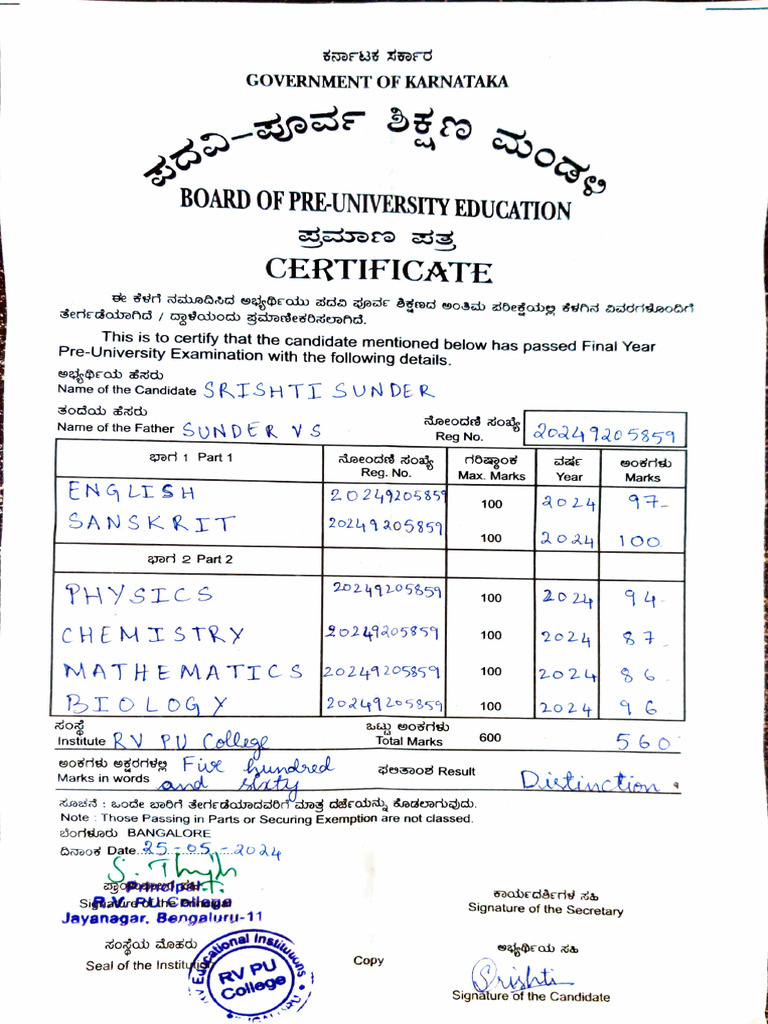 ಕರ್ನಾಟಕ ಸರ್ಕಾರ
GOVERNMENT OF KARNATAKA
ಪದವಿ-ಪೂರ್ವ ಶಿಕ್ಷಣ ಮಂಡಳಿ
BOARD OF PRE-UNIVERSITY EDUCATION
ಪ್ರಮಾಣ ಪತ್ರ
CERTIFICATE
ಈ ಕೆಳಗೆ ನಮೂದಿಸಿದ ಅಭ್ಯರ್ಥಿಯು ಪದವಿ ಪೂರ್ವ ಶಿಕ್ಷಣದ ಅಂತಿಮ ಪರೀಕ್ಷೆಯಲ್ಲಿ ಕೆಳಗಿನ ವಿವರಗಳೊಂದಿಗೆ
ತೇರ್ಗಡೆಯಾಗಿದೆ / ದ್ದಾಳೆಯಂದು ಪ್ರಮಾಣೀಕರಿಸಲಾಗಿದೆ.
This is to certify that the candidate mentioned below has passed Final Year
Pre-University Examination with the following details.
ಅಭ್ಯರ್ಥಿಯ ಹೆಸರು
Name of the Candidate SRISHTI SUNDER
ತಂದೆಯ ಹೆಸರು ನೋಂದಣಿ ಸಂಖ್ಯೆ
Name of the Father SUNDER VS Reg No. 20249205859
ಭಾಗ 1 Part 1 ನೋಂದಣಿ ಸಂಖ್ಯೆ ಗರಿಷ್ಠಾಂಕ ವರ್ಷ ಅಂಕಗಳು
Reg. No. Max. Marks Year Marks
ENGLISH 20249205859 100 2024 97
SANSKRIT 20249205859 100 2024 100
ಭಾಗ 2 Part 2
PHYSICS 20249205859 100 2024 94
CHEMISTRY 20249205859 100 2024 87
MATHEMATICS 20249205859 100 2024 86
BIOLOGY 20249205859 100 2024 96
ಸಂಸ್ಥೆ ಒಟ್ಟು ಅಂಕಗಳು
Institute RV PU College Total Marks 600 560
ಅಂಕಗಳು ಅಕ್ಷರಗಳಲ್ಲಿ Five hundred ಫಲಿತಾಂಶ Result Distinction
Marks in words and sixty
ಸೂಚನೆ : ಒಂದೇ ಬಾರಿಗೆ ತೇರ್ಗಡೆಯಾದವರಿಗೆ ಮಾತ್ರ ದರ್ಜೆಯನ್ನು ಕೊಡಲಾಗುವುದು.
Note : Those Passing in Parts or Securing Exemption are not classed.
ಬೆಂಗಳೂರು BANGALORE
ದಿನಾಂಕ Date 25-05-2024
Principal
Signature of the Principal
R.V. PU College
Jayanagar, Bengaluru-11
ಕಾರ್ಯದರ್ಶಿಗಳ ಸಹಿ
Signature of the Secretary
ಸಂಸ್ಥೆಯ ಮೊಹರು
Seal of the Institution
Educational Institutions
RV PU
College
Copy
ಅಭ್ಯರ್ಥಿಯ ಸಹಿ
Srishti
Signature of the Candidate